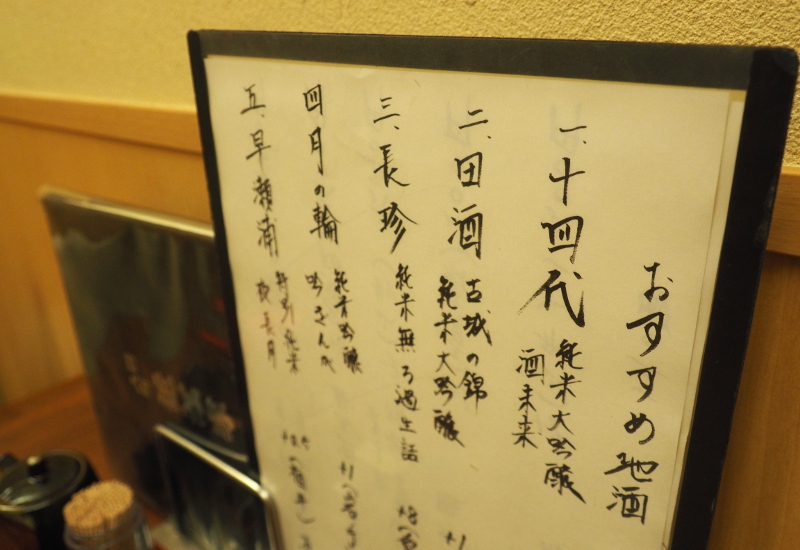 おすすめ地酒
一、十四代 純米大吟醸
酒未来
二、田酒 古城の錦
純米大吟醸
三、長珍 純米無ろ過生詰
四 月の輪 純米吟醸
吟ぎんが
五、早瀬浦 特別純米
夜長月